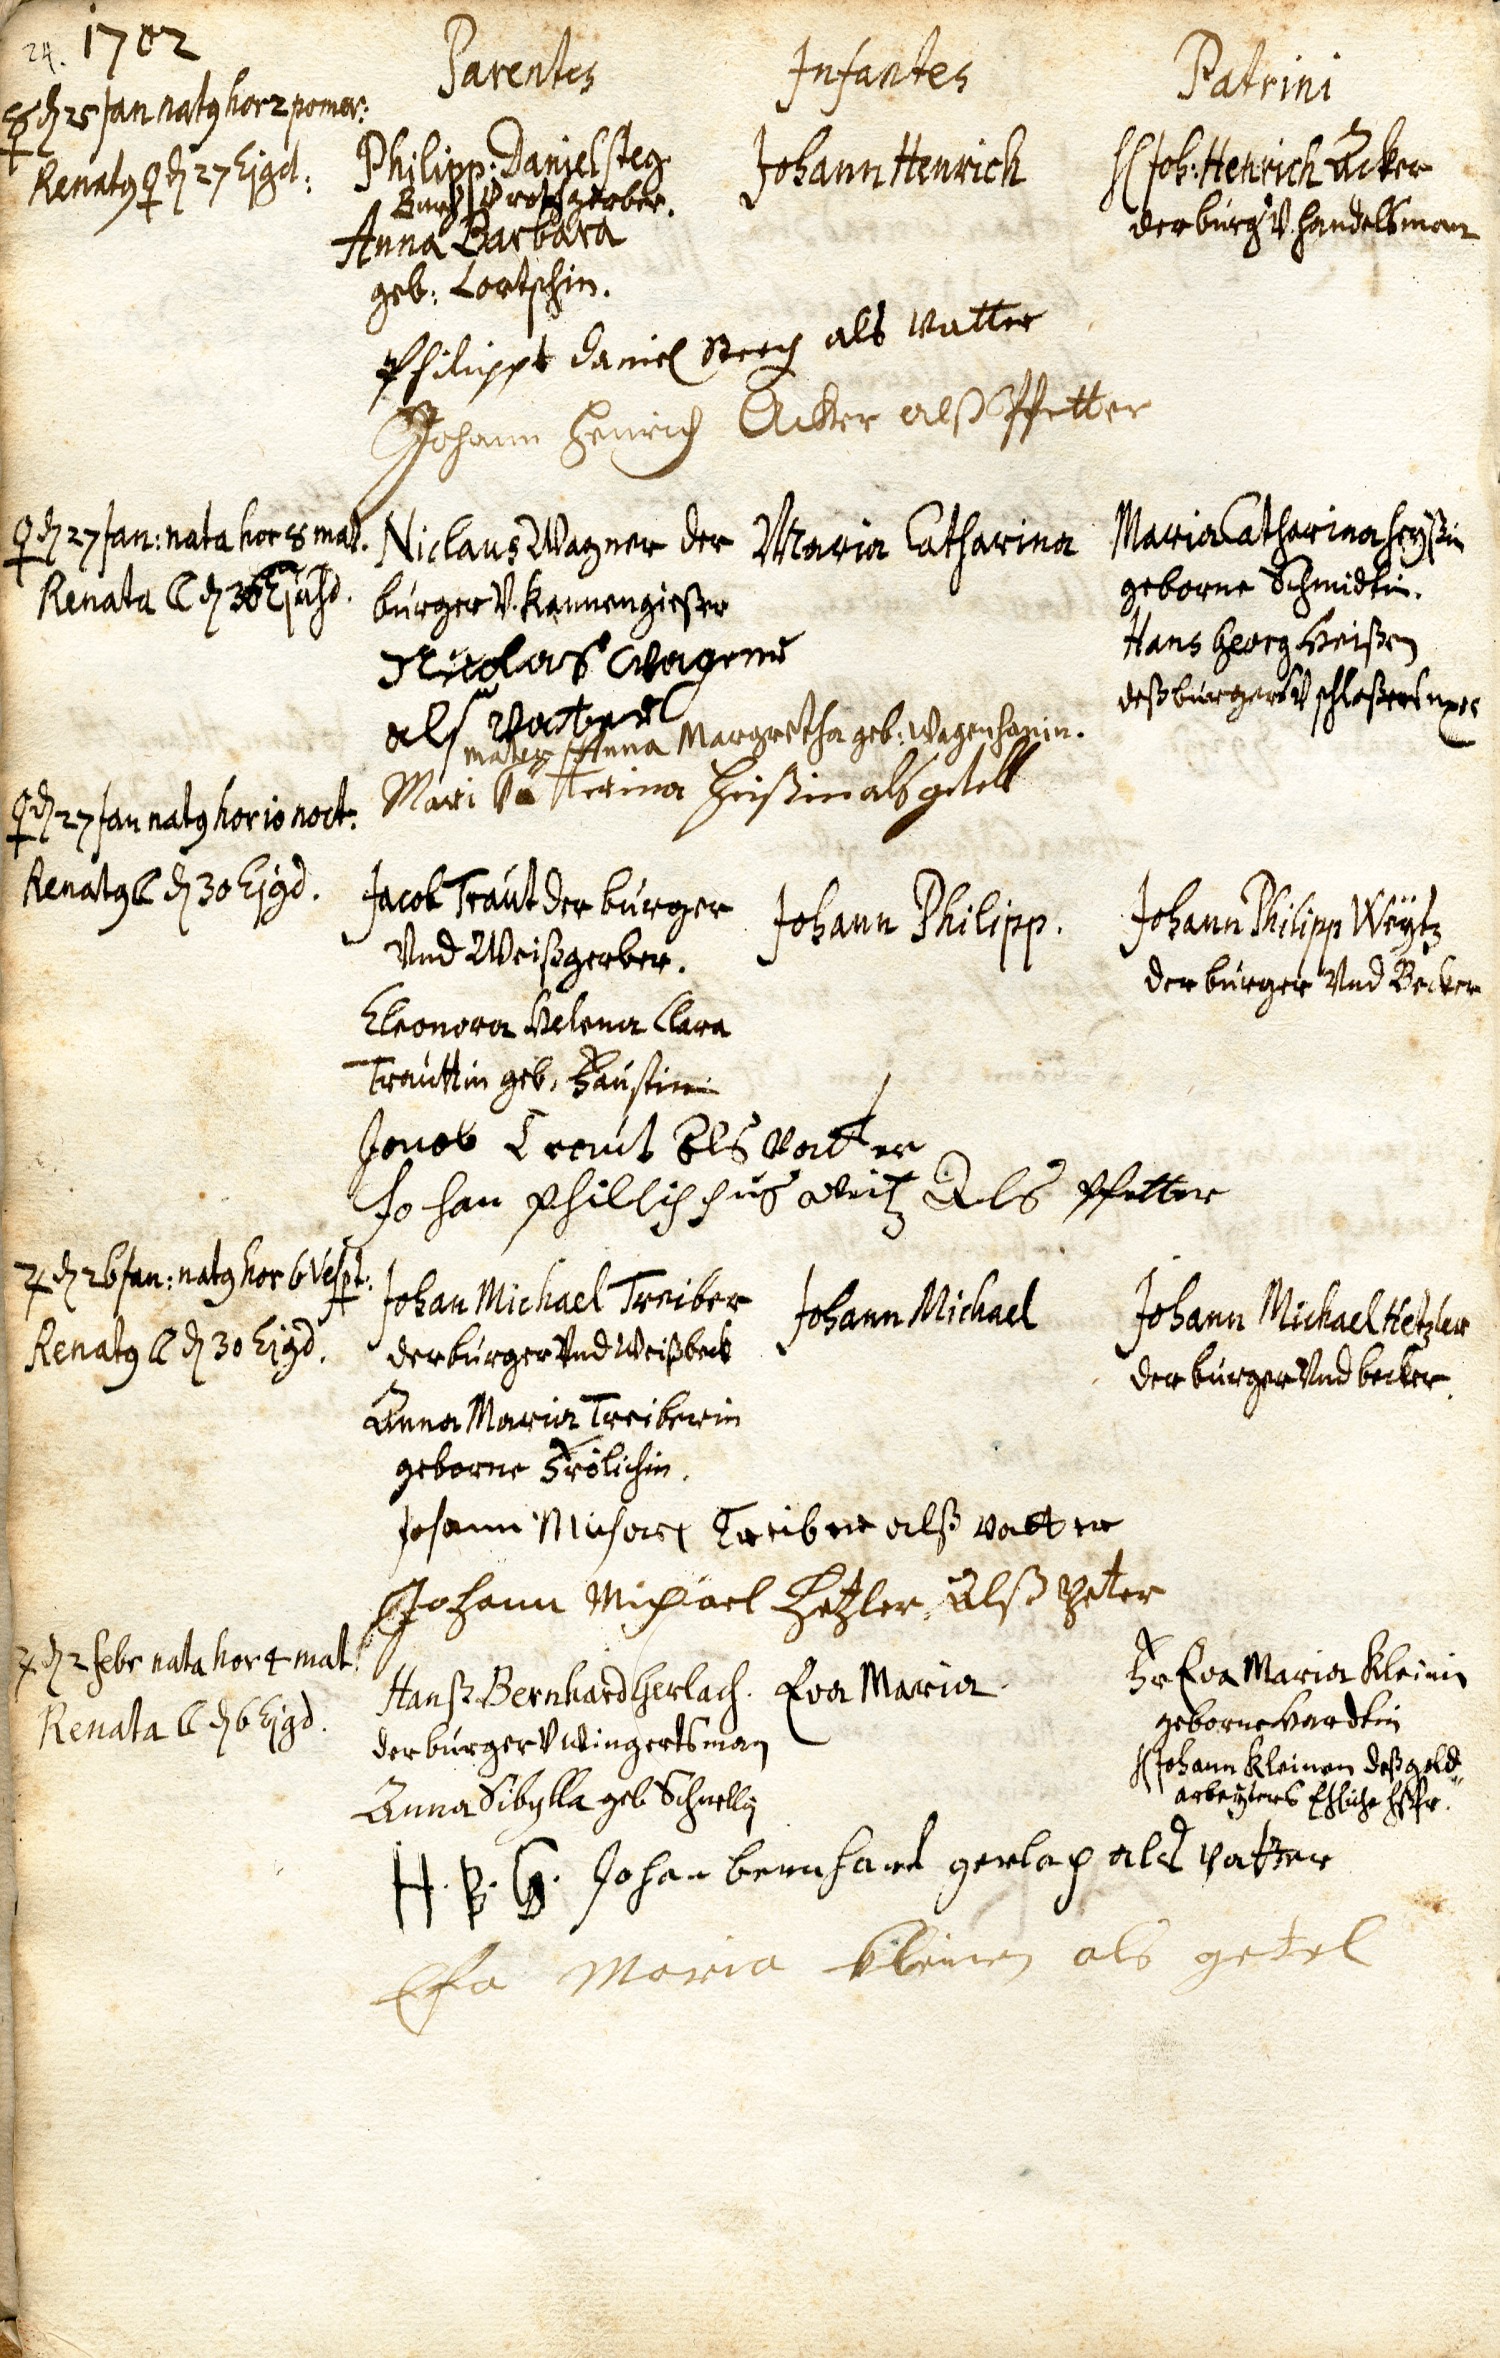 24. 1702
Parentes Infantes Patrini
☿ d 25 Jan natq hor 2 pomer:
Renatq ♀ d 27 Ejqd:
Philipp: Daniel Steg
Burg V rothgerber.
Anna Barbara
geb: Lortschin.
Johann Henrich
H Joh: Henrich Acker
der burg V. handelsman
Philipps Daniel als vatter
Johann Henrich Acker alß Pfetter
♀ d 27 Jan: nata hor 8 mat.
Renata ☾ d 30 Ejusd.
Niclaus Wagner der
burger V. Kannengießer
Maria Catharina
Maria Catharina Heyßin
geborne Schmidtin.
Hans Georg Heißen
deß burgers V schloßers uxor
Nicolas Wagener
als Vatter
mater Anna Margretha geb: Wagenhanin.
Mari Katterina Heißin als getell
♀ d 27 Jan natq hor 10 noct:
Renatq ☾ d 30 Ejqd.
Jacob Traut der burger
Vnd Weißgerber.
Eleonora Helena Clara
Trauttin geb. Faustin
Johann Philipp.
Johann Philipp Weytz
der burger Vnd Becker
Jacob Traut Als Vatter
Johan Phillippus Weitz Als Pfetter
♃ d 26 Jan: natq hor 6 Vespt:
Renatq ☾ d 30 Ejqd.
Johan Michael Treiber
der burger Vnd Weißbeck
Anna Maria Treiberin
geborne Frölichin.
Johann Michael
Johann Michael Hetzler
der burger Vnd becker.
Johann Michael Treiber alß vatter
Johann Michael Hetzler Alß Peter
♃ d 2 febr nata hor 4 mat.
Renata ☾ d 6 Ejqd.
Hanß Bernhard Gerlach.
der burger V Wingertsman
Anna Sibylla geb Schnellin
Eva Maria
Fr Eva Maria Kleinin
geborne Hardtin
H Johann Kleinen deß gold
arbeyters Ehliche Hßfr.
H. B. G. Johan bernhard gerlach als vatter
Efa Maria Kleinen als getel